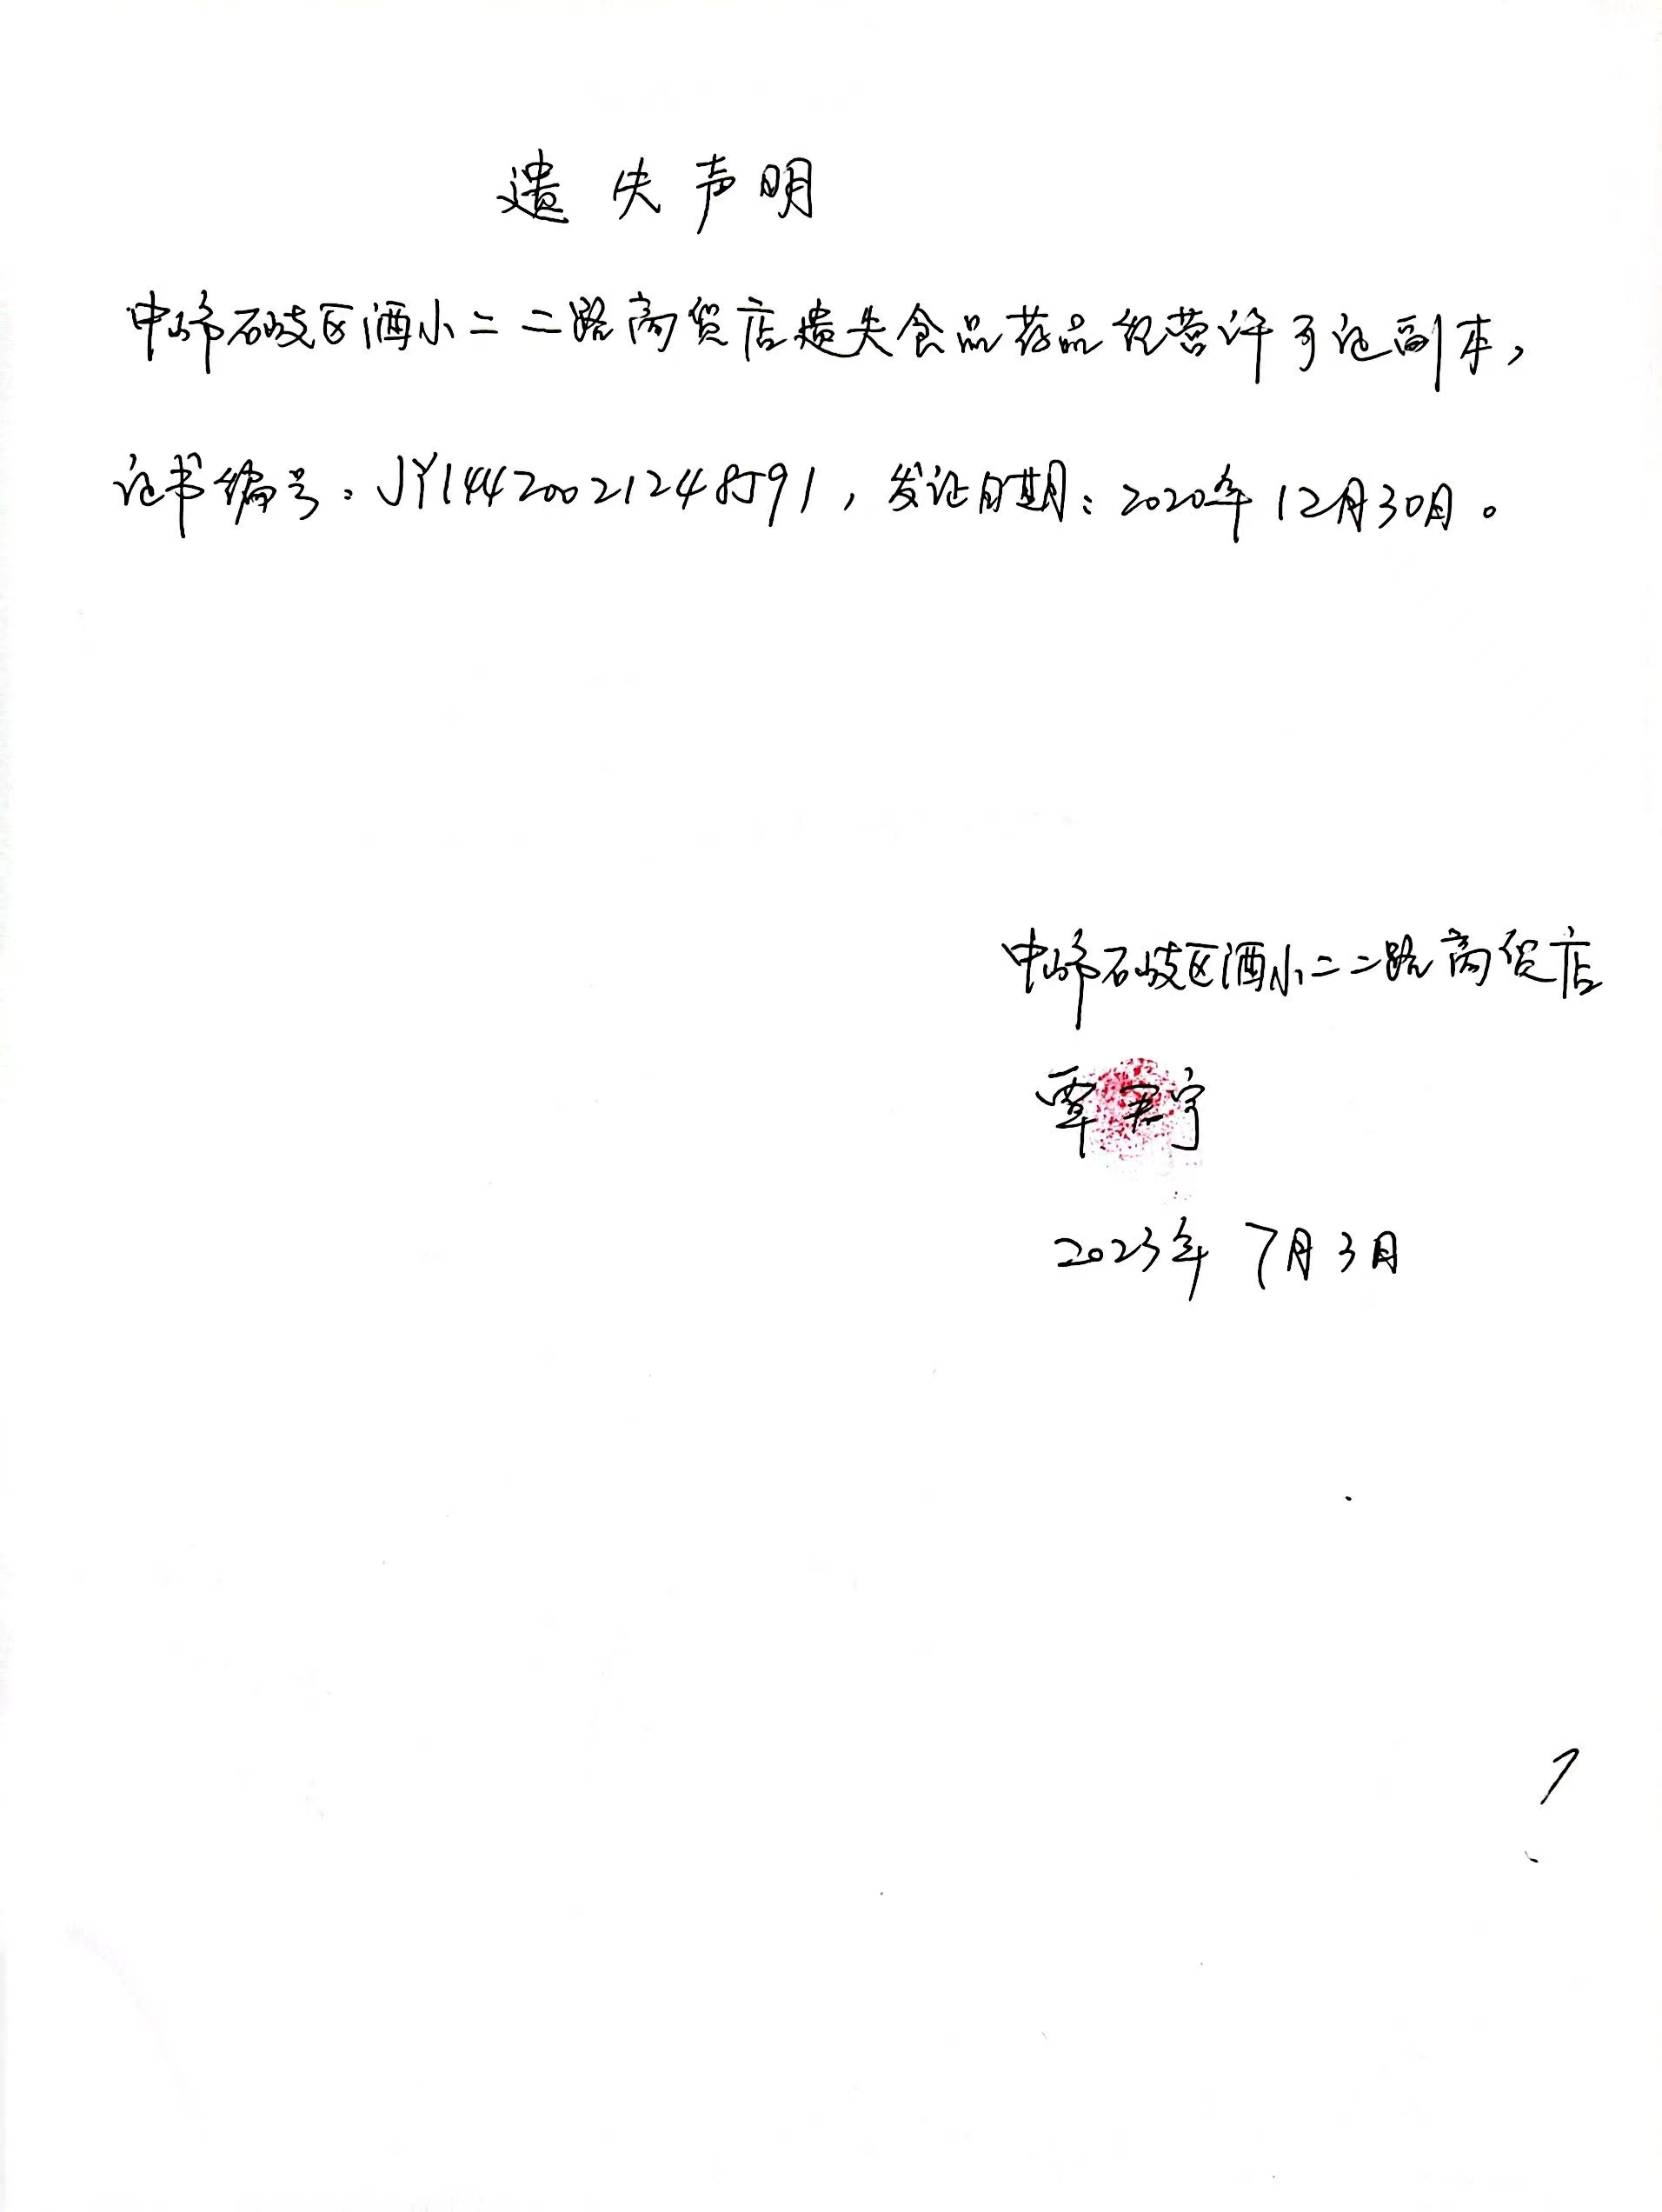 遗失声明
中山市石岐区酒小二二路商贸店遗失食品药品经营许可证副本，
证书编号：JY14420021248591，发证日期：2020年12月30日。
中山市石岐区酒小二二路商贸店
覃宇
2023年7月3日